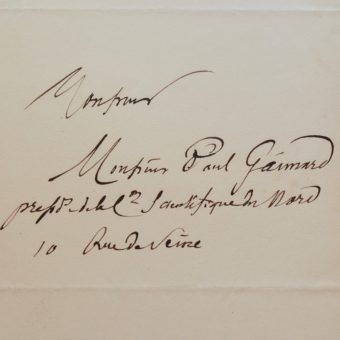 Monsieur
Monsieur Paul Gaimard
presdt. de la Con Scientifique du Nord
10 Rue de Seine